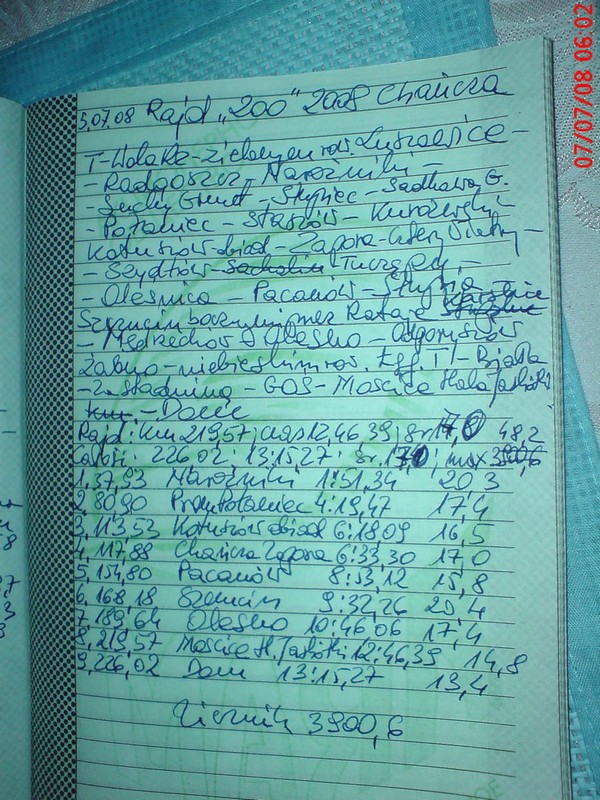 07/07/08 06:02
5,07,08 Rajd „200" 2008 Chańcza
T-Wola Rz-zielonym row. Luszowice -
- Radgoszcz - Narożniki -
- Suchy Grunt - Słupiec - Sadkowa G.
- Połaniec - Staszów - Kurozwęki -
Kotuszów obiad - Zapora -
- Szydłów - Tuczępy -
- Oleśnica - Pacanów - Słupia -
Szczucin Rataje
- Mędrzechów Olesno - Odporyszów
Żabno - niebieskim row. T - Biała
- Za Stadniną - GOS - Mościce Hala Jaskółki
- Dom
Rajd: km 219,57; czas 12,46,39; śr 17,0 48,2
Całość: 226 02; 13:15,27; śr. 17,0; max
1,37,93 Narożniki 1:51,34 20,3
2,80,90 Prom Połaniec 4:19,47 17,4
3,113,53 Kotuszów obiad 6:18,09 16,5
4,117,88 Chańcza Zapora 6:33,30 17,0
5,154,80 Pacanów 8:53,12 15,8
6,168,18 Szczucin 9:32,26 20,4
7,189,64 Olesno 10:46,06 17,4
8,219,57 Mościce H. Jaskółki 12:46,39 14,8
9,226,02 Dom 13:15,27 13,4
Licznik 3900,6